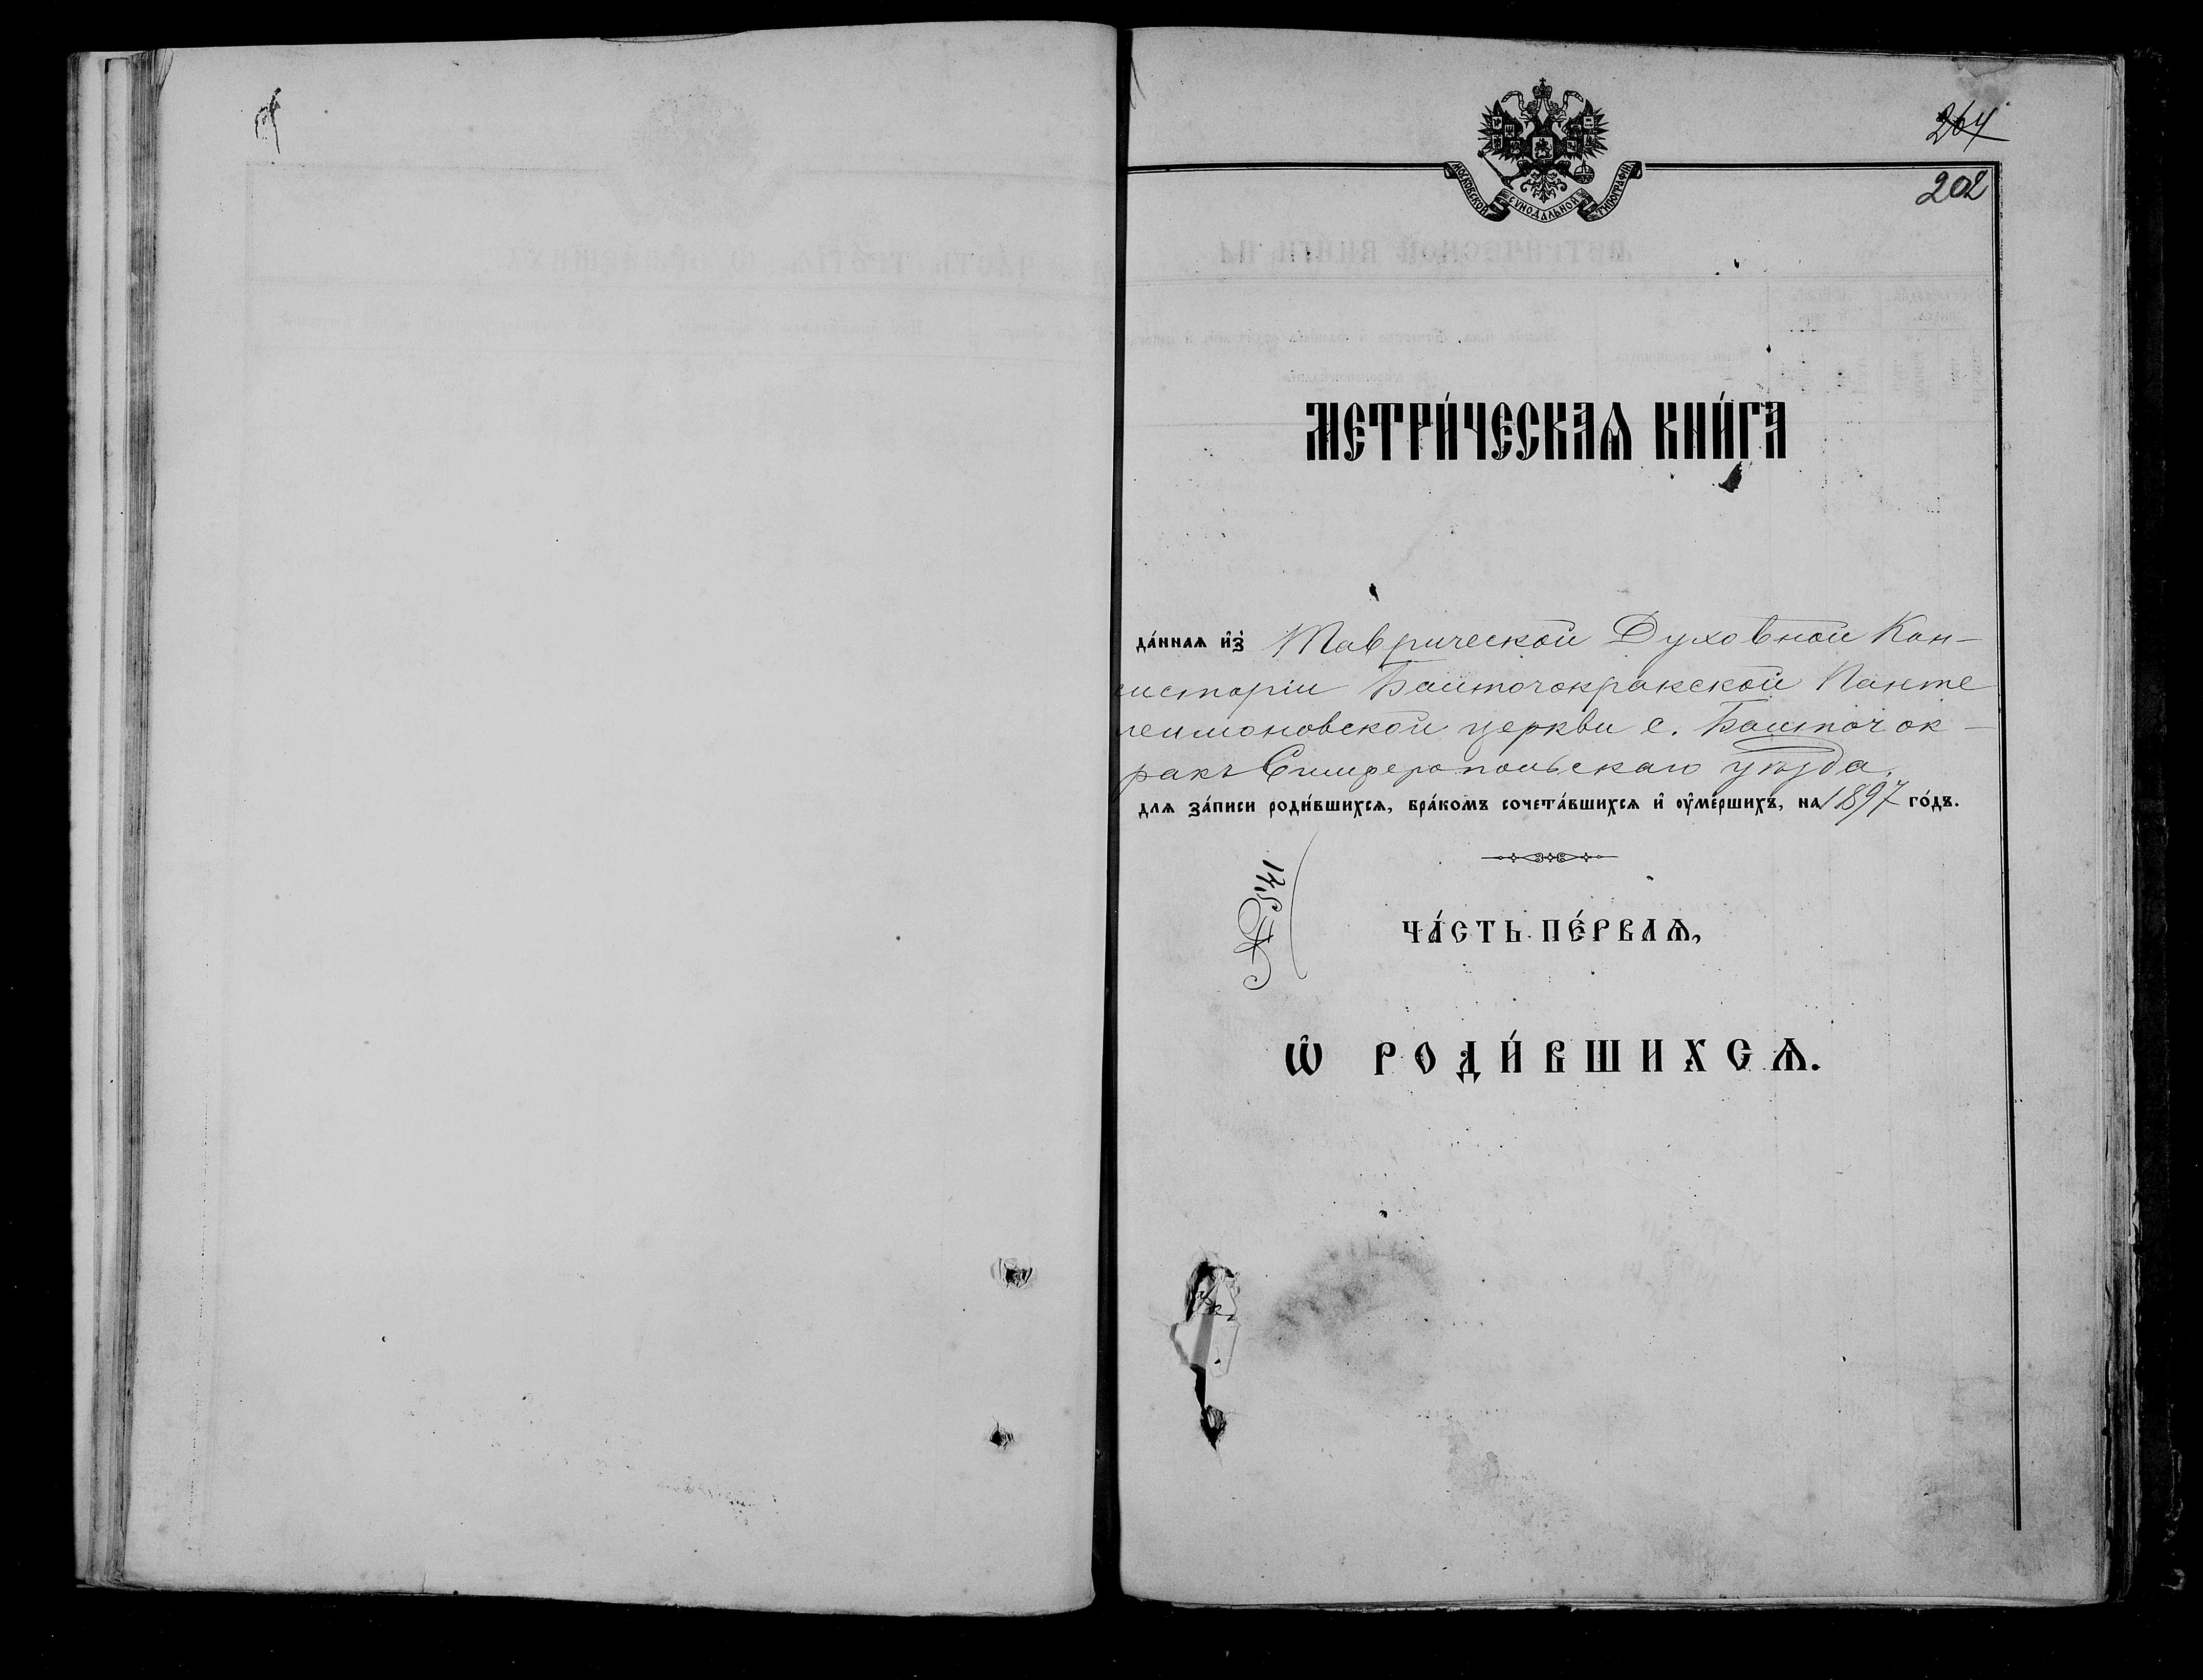 264
202
МОСКОВСКОЙ СѴНОДАЛЬНОЙ ТИПОГРАФІИ
МЕТРИ́ЧЕСКАѦ КНИ́ГА
да́ннаѧ и҆з̾ Таврической Духовной Кон-
систоріи Башточокракской Панте
леимоновской церкви с. Баштачок-
ракъ Симферопольскаго уѣзда.
для за́писи роди́вшихсѧ, бра́комъ сочета́вшихсѧ и҆ оу҆ме́ршихъ, на 1897 го́дъ.
ЧА́СТЬ ПЕ́РВАѦ,
Ѡ҆ РОДИ́ВШИХСѦ.